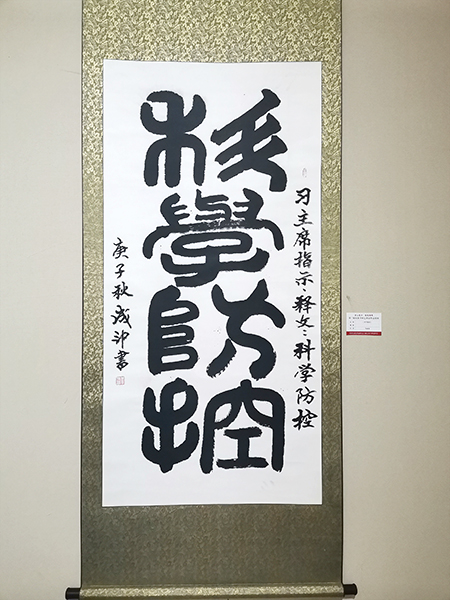 习主席指示：释文：科学防控
科學防控
庚子秋書